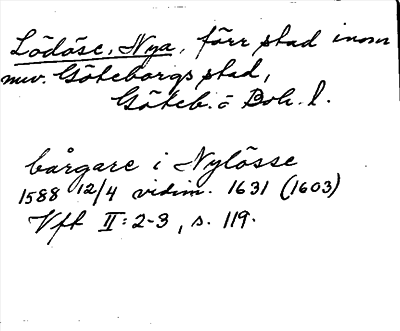 Lödöse, Nya, förr stad inom
nuv. Göteborgs stad,
Göteb. o Boh. l.
bårgare i Nylösse
1588 12/4 vidim. 1631 (1603)
Vft II: 2-3, s. 119.